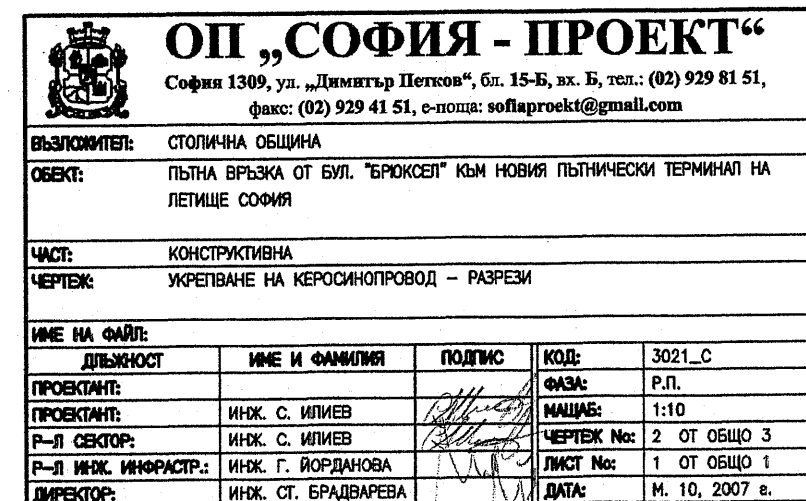 ОП „СОФИЯ - ПРОЕКТ“
София 1309, ул. „Димитър Петков“, бл. 15-Б, вх. Б, тел.: (02) 929 81 51,
факс: (02) 929 41 51, е-поща: sofiaproekt@gmail.com
ВЪЗЛОЖИТЕЛ: СТОЛИЧНА ОБЩИНА
ОБЕКТ: ПЪТНА ВРЪЗКА ОТ БУЛ. "БРЮКСЕЛ" КЪМ НОВИЯ ПЪТНИЧЕСКИ ТЕРМИНАЛ НА
ЛЕТИЩЕ СОФИЯ
ЧАСТ: КОНСТРУКТИВНА
ЧЕРТЕЖ: УКРЕПВАНЕ НА КЕРОСИНОПРОВОД – РАЗРЕЗИ
ИМЕ НА ФАЙЛ:
ДЛЪЖНОСТ ИМЕ И ФАМИЛИЯ ПОДПИС КОД: 3021_C
ПРОЕКТАНТ: ФАЗА: Р.П.
ПРОЕКТАНТ: ИНЖ. С. ИЛИЕВ МАЩАБ: 1:10
Р–Л СЕКТОР: ИНЖ. С. ИЛИЕВ ЧЕРТЕЖ No: 2 ОТ ОБЩО 3
Р–Л ИНЖ. ИНФРАСТР.: ИНЖ. Г. ЙОРДАНОВА ЛИСТ No: 1 ОТ ОБЩО 1
ДИРЕКТОР: ИНЖ. СТ. БРАДВАРЕВА ДАТА: М. 10, 2007 г.